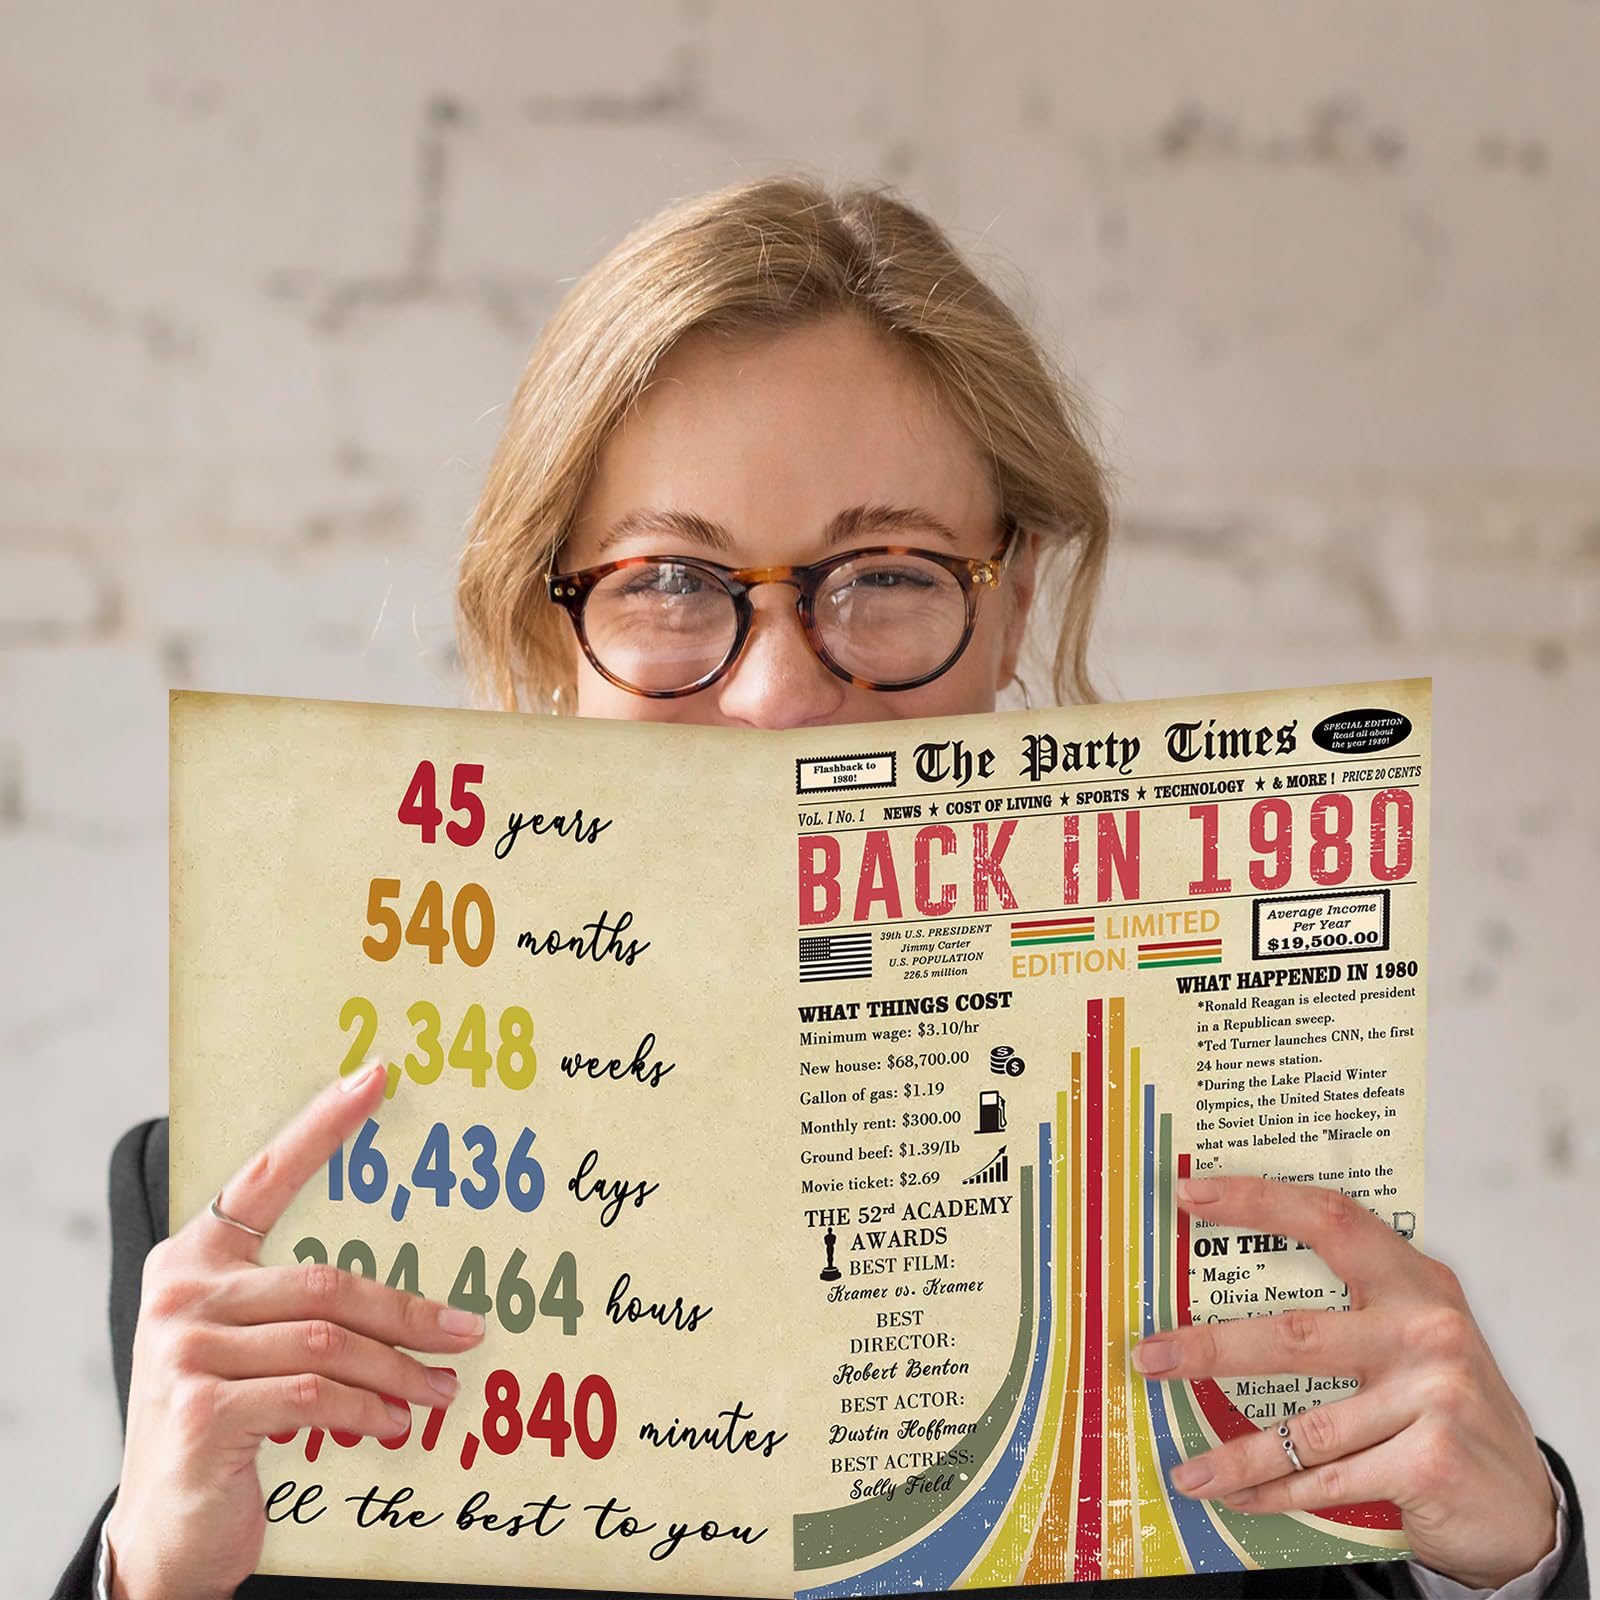 45 years
540 months
2,348 weeks
16,436 days
464 hours
7,840 minutes
the best to you
Flashback to
1980!
The Party Times
SPECIAL EDITION
Read all about
the year 1980!
VoL. I No. 1
NEWS ★ COST OF LIVING ★ SPORTS ★ TECHNOLOGY ★ & MORE!
PRICE 20 CENTS
BACK IN 1980
39th U.S. PRESIDENT
Jimmy Carter
U.S. POPULATION
226.5 million
LIMITED
EDITION
Average Income
Per Year
$19,500.00
WHAT THINGS COST
Minimum wage: $3.10/hr
New house: $68,700.00
Gallon of gas: $1.19
Monthly rent: $300.00
Ground beef: $1.39/lb
Movie ticket: $2.69
THE 52rd ACADEMY
AWARDS
BEST FILM:
Kramer vs. Kramer
BEST
DIRECTOR:
Robert Benton
BEST ACTOR:
Dustin Hoffman
BEST ACTRESS:
Sally Field
WHAT HAPPENED IN 1980
*Ronald Reagan is elected president
in a Republican sweep.
*Ted Turner launches CNN, the first
24 hour news station.
*During the Lake Placid Winter
Olympics, the United States defeats
the Soviet Union in ice hockey, in
what was labeled the "Miracle on
Ice".
viewers tune into the
who
ON THE
“ Magic ”
- Olivia Newton - J
- Michael Jackso
“ Call Me ”